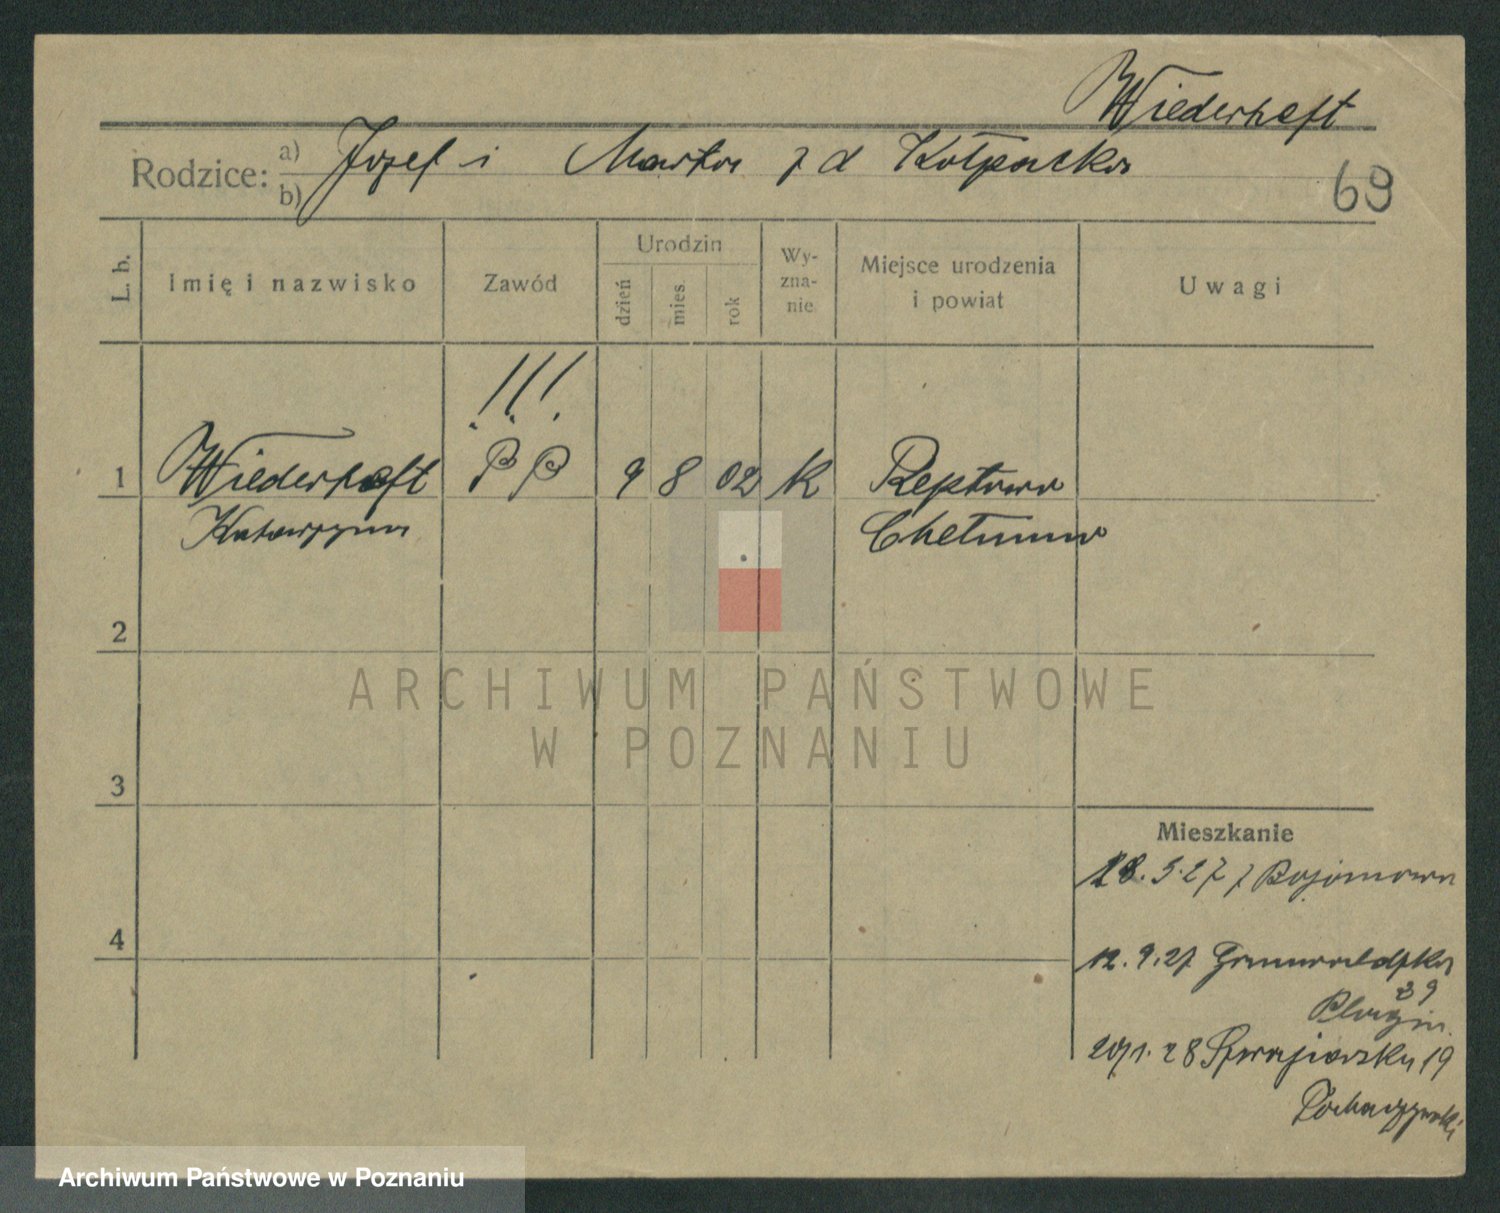 Wiederheft
Rodzice: a) b) Józef i Marta z d Kołpacka
69
L. b. Imię i nazwisko Zawód Urodzin dzień mies. rok Wyznanie Miejsce urodzenia i powiat Uwagi
!!!
1 Wiederheft PP 9 8 02 K Reptowo
Katarzyna Chełmno
2
ARCHIWUM PAŃSTWOWE
W POZNANIU
3
Mieszkanie
28.5.27 z Bojanowa
4
12.9.27 Grunwaldzka
39
1.28 19
Archiwum Państwowe w Poznaniu